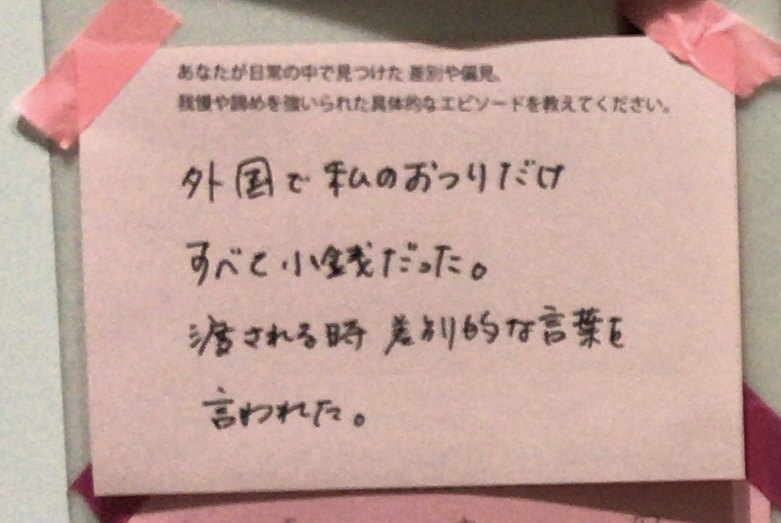 あなたが日常の中で見つけた 差別や偏見、
我慢や諦めを強いられた具体的なエピソードを教えてください。
外国で私のおつりだけ
すべて小銭だった。
渡される時 差別的な言葉を
言われた。